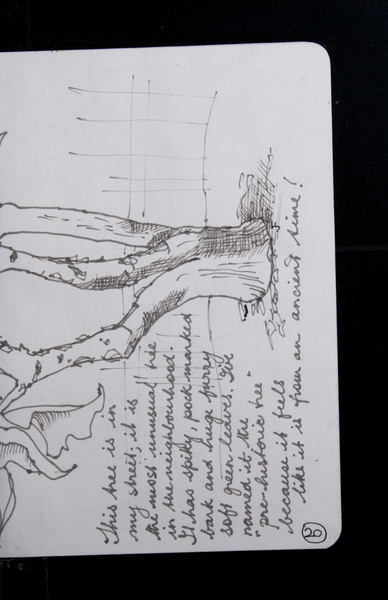 This tree is in
my street, it is
the most unusual tree
in the neighbourhood.
It has spiky, pock marked
bark and huge furry
soft green leaves. I've
named it the
"pre-historic tree"
because it feels
like it is from an ancient time!
26